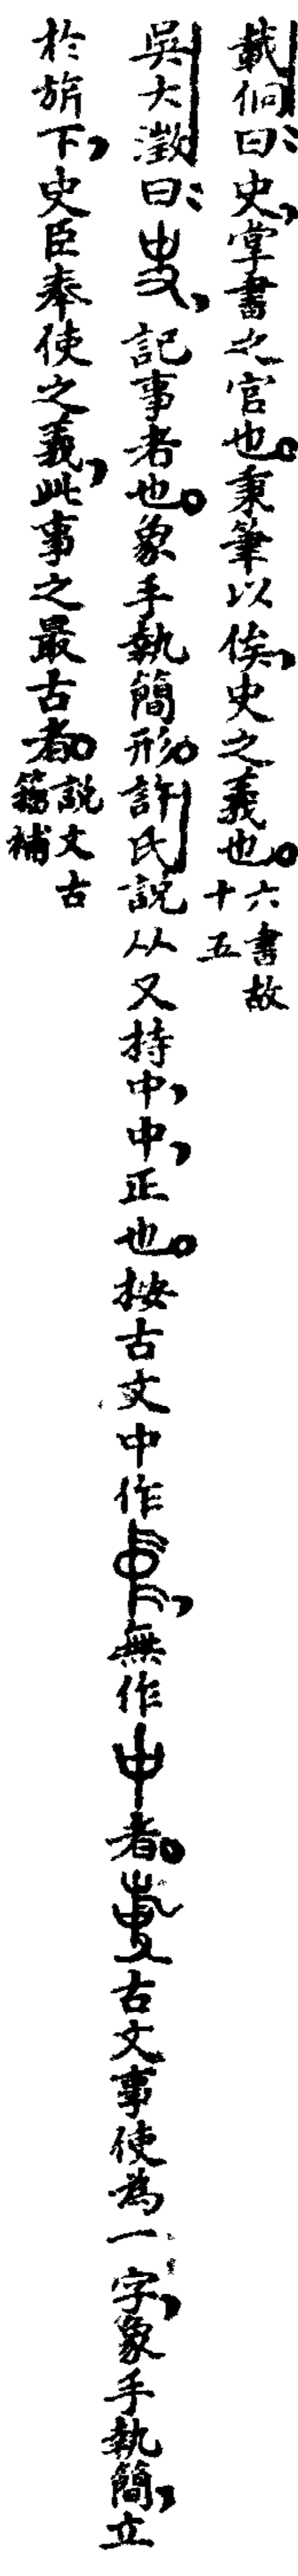 戴侗曰：史，掌書之官也。秉筆以俟，史之義也。六書故十五
吳大澂曰：，記事者也。象手執簡形。許氏說从又持中，中，正也。按古文中作，無作者。古文事使為一字，象手執簡，立
於旂下，史臣奉使之義，此事之最古者。說文古籀補